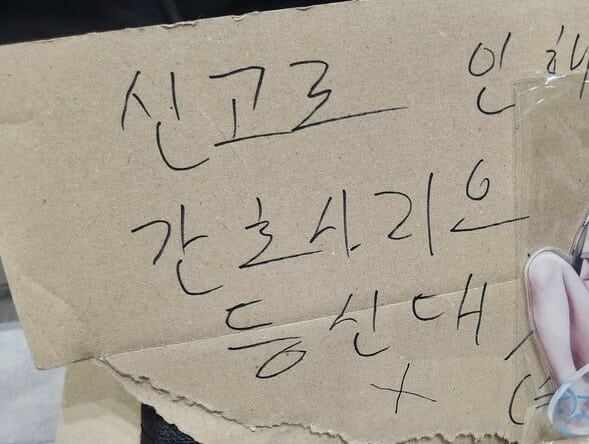 신고로 인해
간호사리오
등신대
X